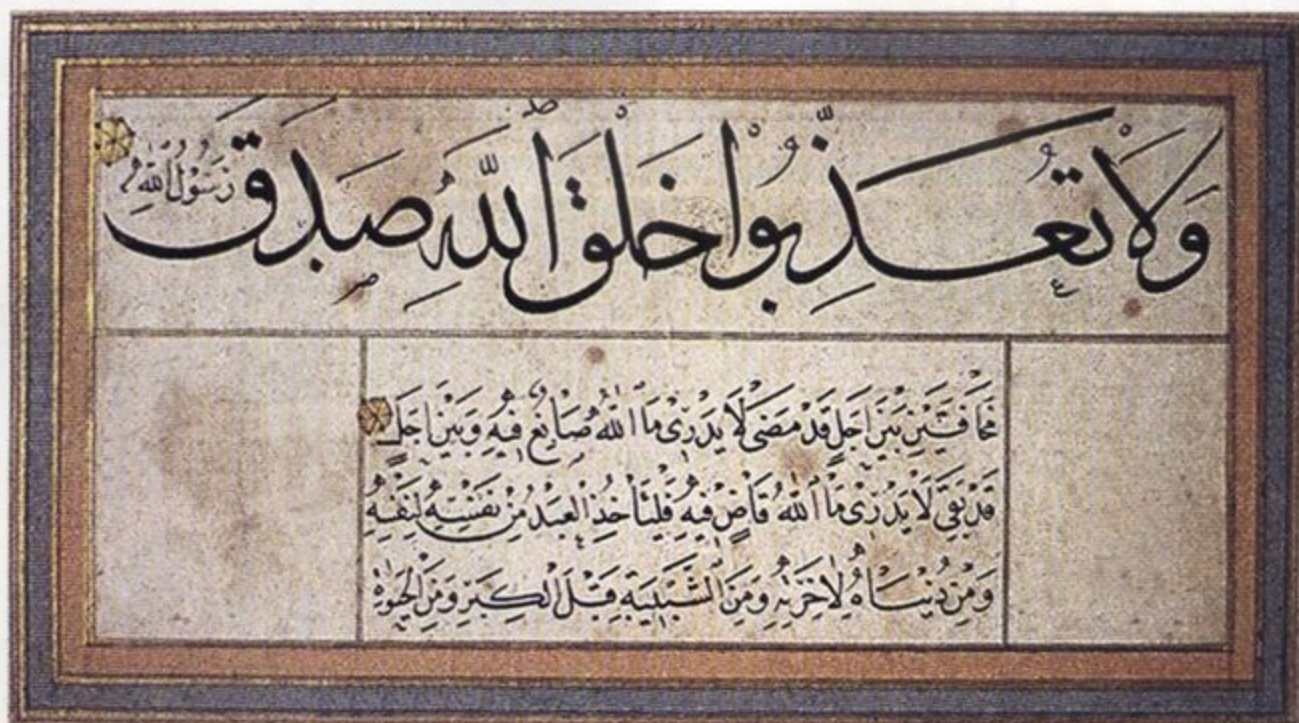 وَلَا تُعَذِّبُوا خَلْقَ اللّٰهِ صَدَقَ رَسُولُ اللّٰهِ
مَخَافَتَيْنِ بَيْنَ اَجَلٍ قَدْ مَضٰى لَا يَدْرٰى مَا اللّٰهُ صَانِعٌ فٖيهِ وَبَيْنَ اَجَلٍ
قَدْ بَقٰى لَا يَدْرٰى مَا اللّٰهُ قَاضٍ فٖيهِ فَلْيَأْخُذِ الْعَبْدُ مِنْ نَفْسِهٖ لِنَفْسِهٖ
وَمِنْ دُنْيَاهُ لِاٰخِرَتِهٖ وَمِنَ الشَّبٖيبَةِ قَبْلَ الْكِبَرِ وَمِنَ الْحَيٰوةِ